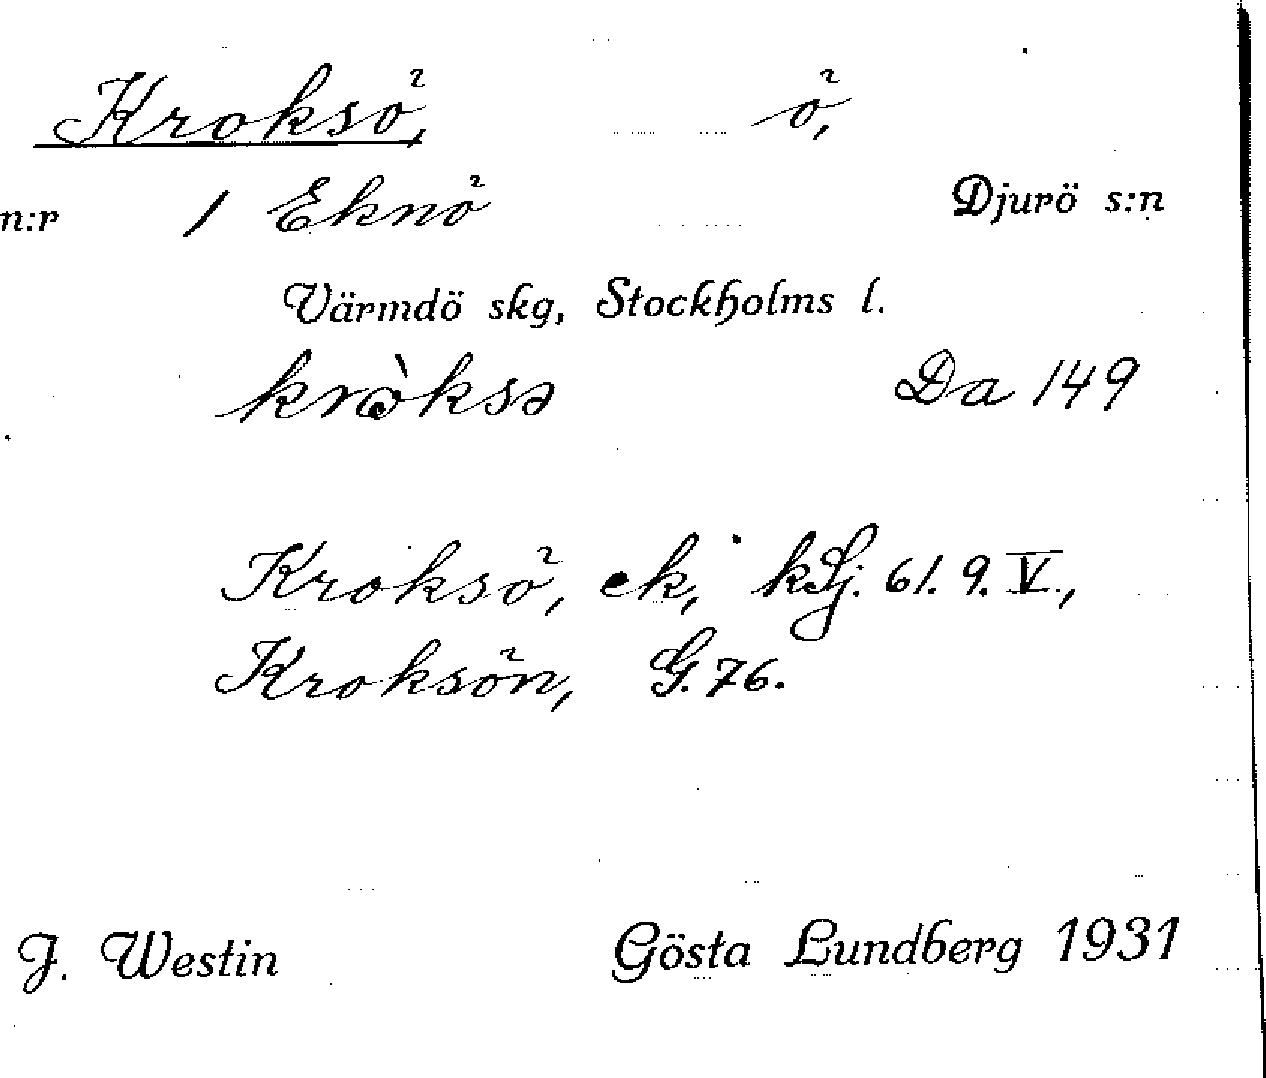 Kroksö, ö,
n:r 1 Eknö Djurö s:n
Värmdö skg, Stockholms l.
krɷ̀ksə Da 149
Kroksö, ek, kSj. 61. 9. V,
Kroksön, G. 76.
J. Westin Gösta Lundberg 1931